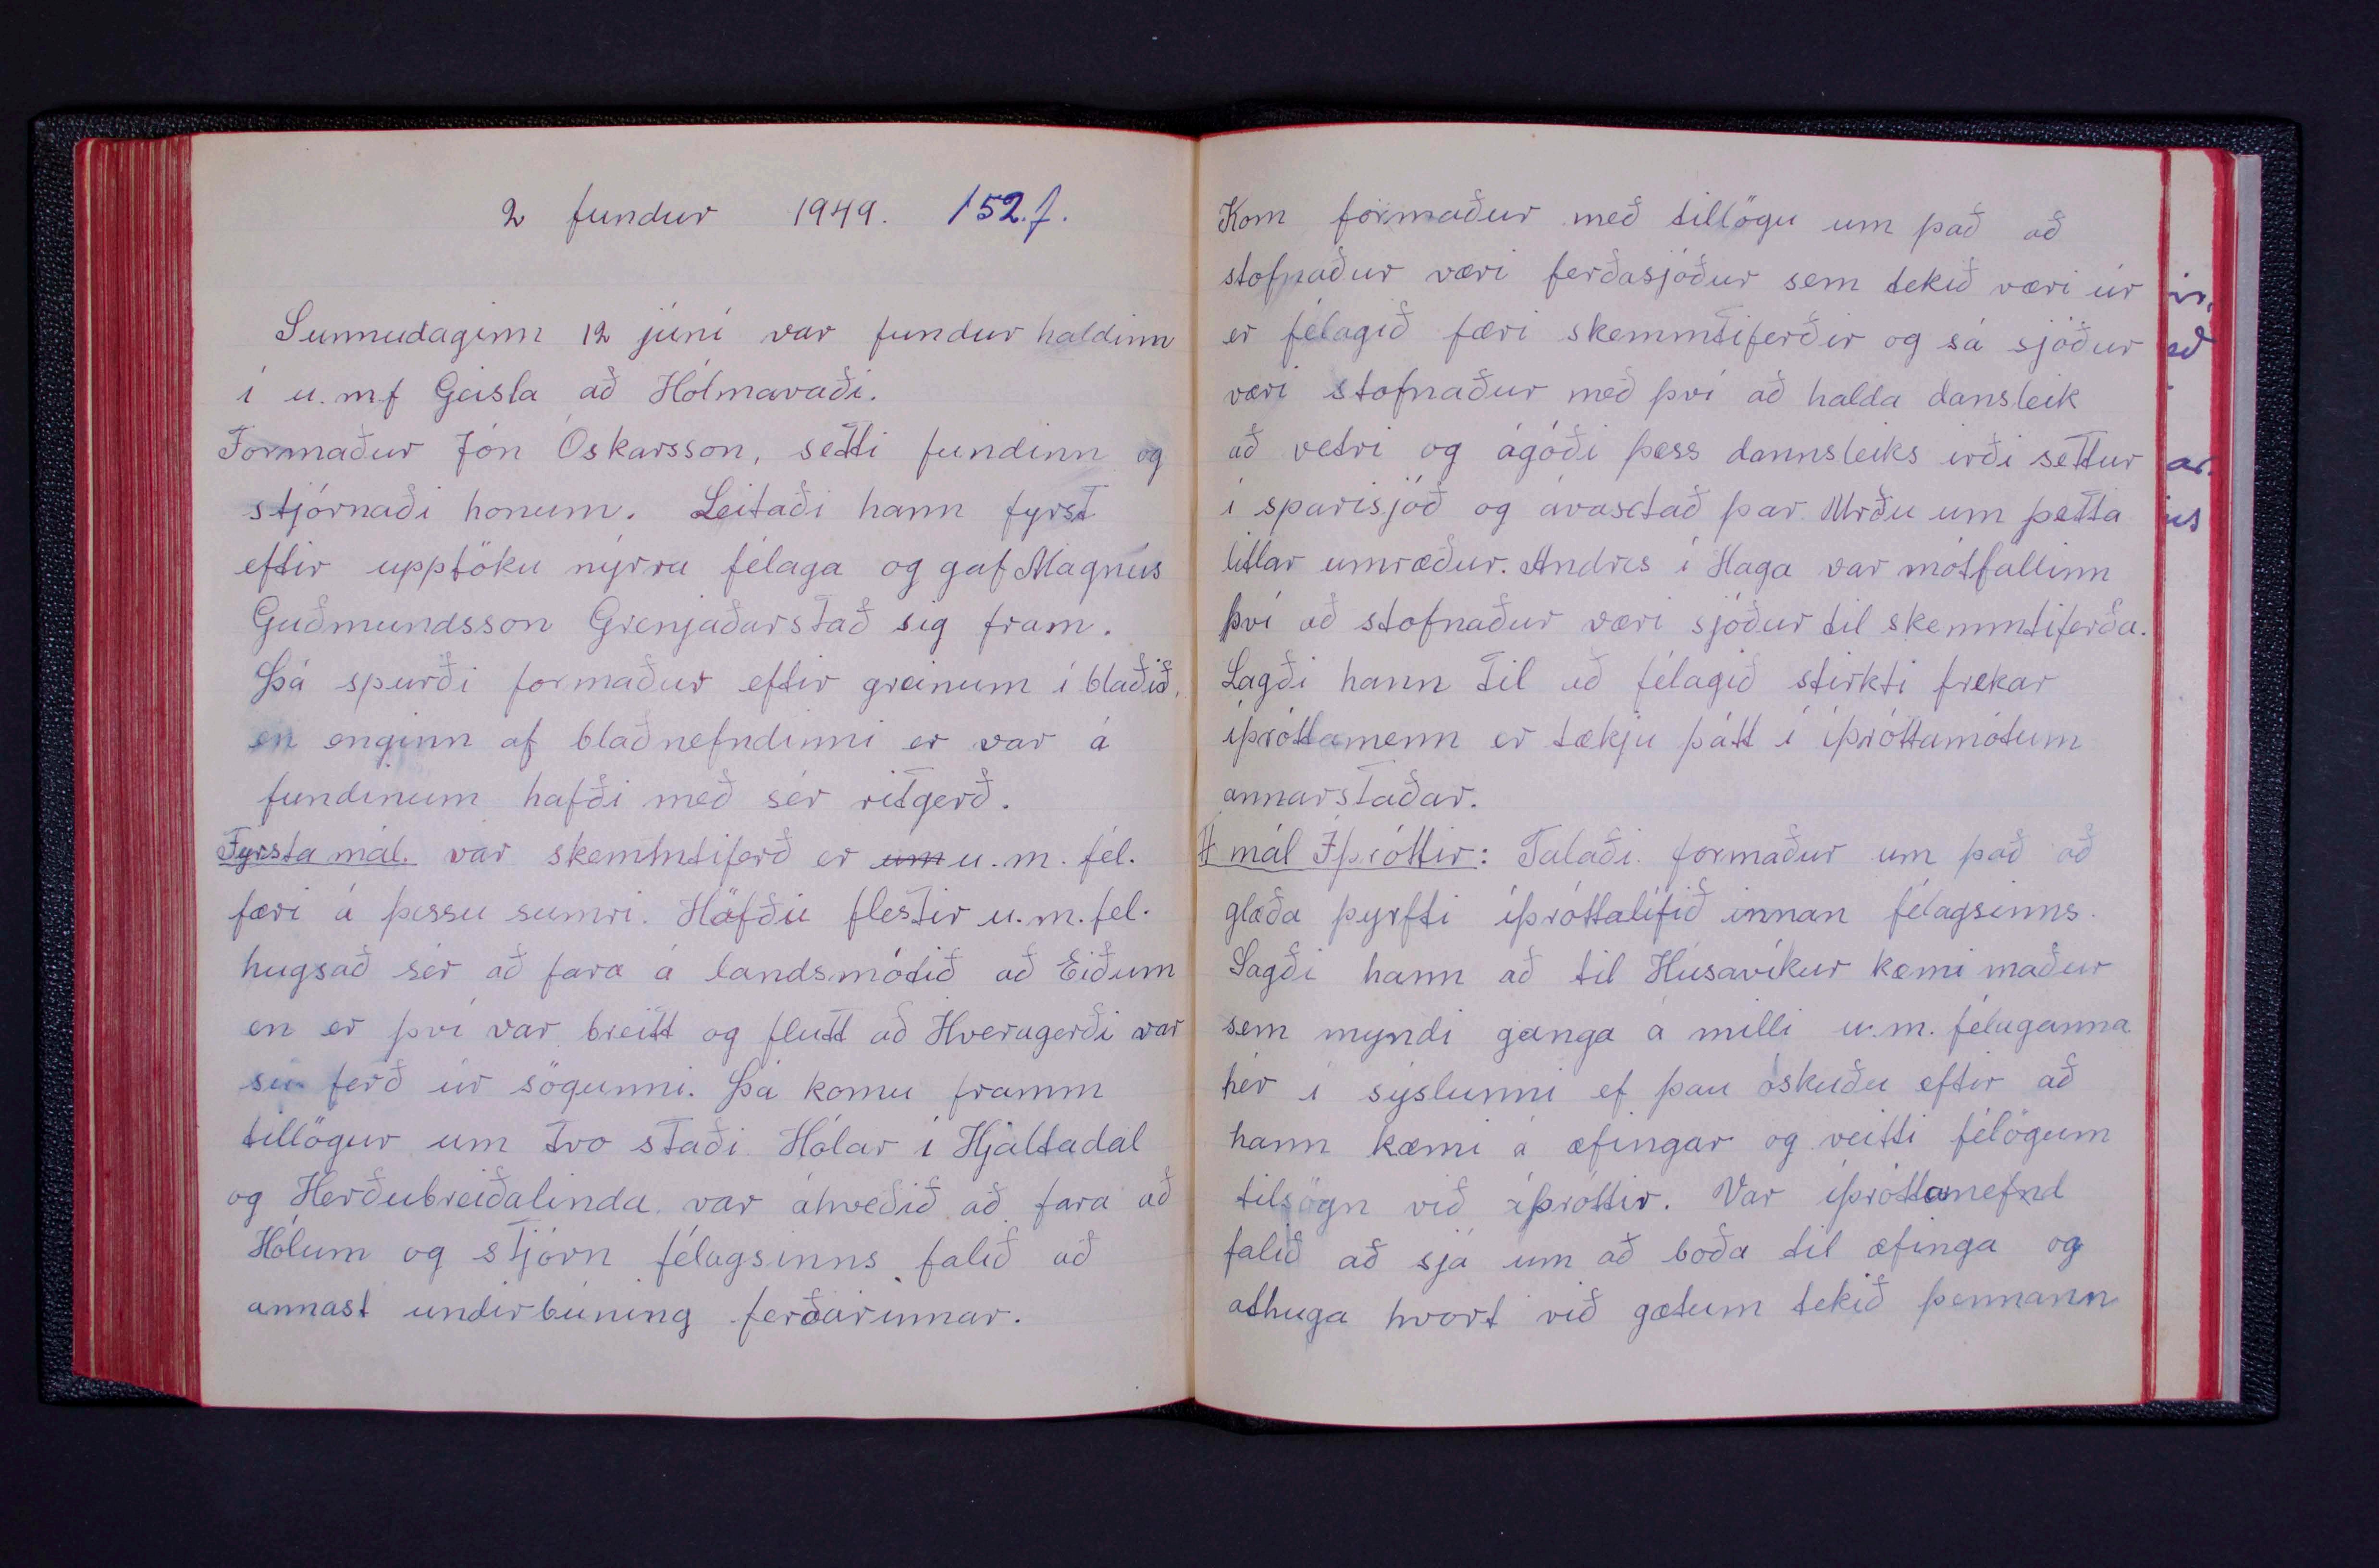 2 fundur 1949. 152.f.
Sunnudaginn 12 júní var fundur haldinn
í u.mf Geisla að Hólmavaði.
Formaður Jón Óskarsson, setti fundinn og
stjórnaði honum. Leitaði hann fyrst
eftir upptöku nýrra félaga og gaf Magnús
Guðmundsson Grenjaðarstað sig fram.
Þá spurði formaður eftir greinum í blaðið,
en enginn af blaðnefndinni er var á
fundinum hafði með sér ritgerð.
Fyrsta mál. var skemmtiferð er um u.m.fél.
færi á þessu sumri. Höfðu flestir u.m.fél.
hugsað sér að fara á landsmótið að Eiðum
en er því var breitt og flutt að Hveragerði var
sú ferð úr sögunni. Þá komu framm
tillögur um tvo staði Hólar í Hjaltadal
og Herðubreiðalinda var áhveðið að fara að
Hólum og stjórn félagsinns falið að
annast undirbúning ferðarinnar.
Kom formaður með tillögu um það að
stofnaður væri ferðasjóður sem tekið væri úr
er félagið færi skemmtiferðir og sá sjóður
væri stofnaður með því að halda dansleik
að vetri og ágóði þess dannsleiks irði settur
í sparisjóð og ávaxtað þar. Urðu um þetta
litlar umræður. Andrés í Haga var mótfallinn
því að stofnaður væri sjóður til skemmtiferða.
Lagði hann til að félagið stirkti frekar
íþróttamenn er tækju þátt í íþróttamótum
annarstaðar.
II mál Íþróttir: Talaði formaður um það að
glæða þyrfti íþróttalífið innan félagsinns.
Sagði hann að til Húsavíkur kæmi maður
sem myndi ganga á milli u.m. félaganna
hér í sýslunni ef þau óskuðu eftir að
hann kæmi á æfingar og veitti félögum
tilsögn við íþróttir. Var íþróttanefnd
falið að sjá um að boða til æfinga og
athuga hvort við gætum tekið þennann